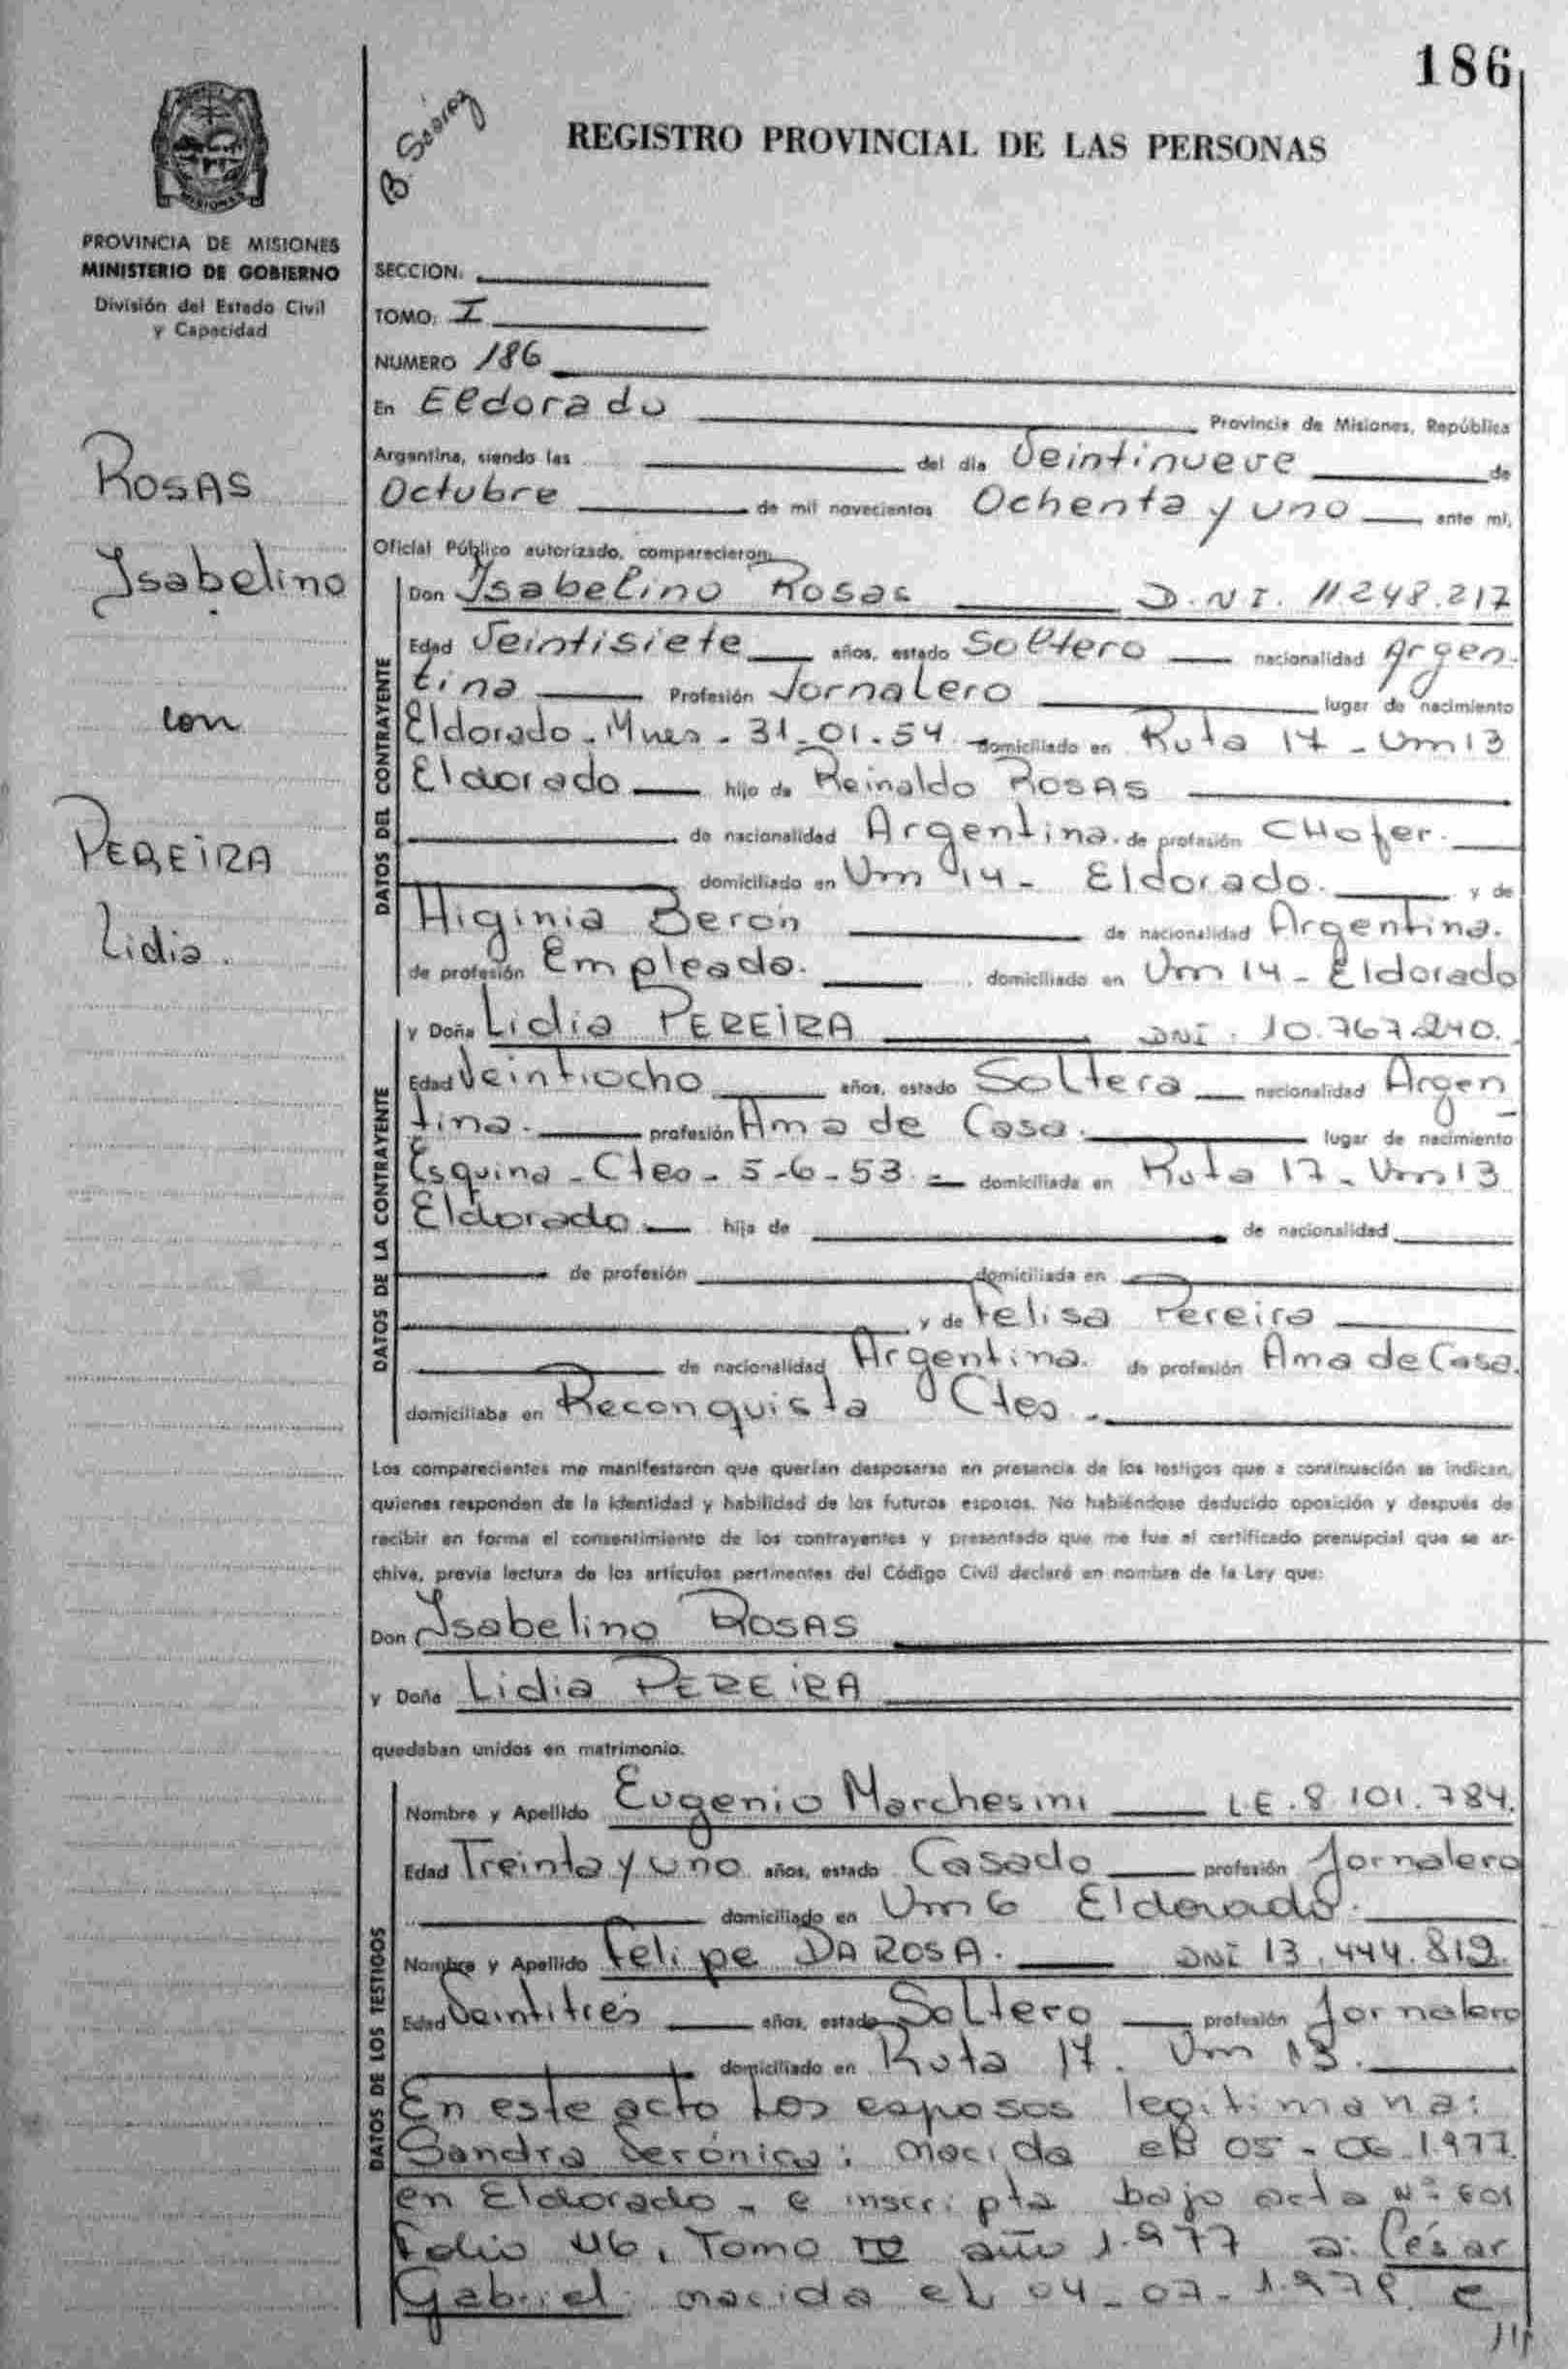 186
B. Suárez
REGISTRO PROVINCIAL DE LAS PERSONAS
MISIONES
PROVINCIA DE MISIONES
MINISTERIO DE GOBIERNO
División del Estado Civil
y Capacidad
ROSAS
Isabelino
con
PEREIRA
Lidia.
SECCION:
TOMO: I
NUMERO 186
En Eldorado Provincia de Misiones, República
Argentina, siendo las del día Veintinueve de
Octubre de mil novecientos Ochenta y uno ante mí,
Oficial Público autorizado, comparecieron:
DATOS DEL CONTRAYENTE
Don Isabelino Rosas D.N.I. 11.248.217
Edad Veintisiete años, estado Soltero nacionalidad Argen-
tina Profesión Jornalero lugar de nacimiento
Eldorado - Mnes - 31-01-54 domiciliado en Ruta 17 - Km 13
Eldorado hijo de Reinaldo ROSAS
de nacionalidad Argentina. de profesión CHofer.
domiciliado en Km 14 - Eldorado. y de
Higinia Berón de nacionalidad Argentina.
de profesión Empleada. domiciliado en Km 14 - Eldorado
DATOS DE LA CONTRAYENTE
y Doña Lidia PEREIRA DNI. 10.767.240.
Edad Veintiocho años, estado Soltera nacionalidad Argen
tina. profesión Ama de Casa. lugar de nacimiento
Esquina - Ctes - 5-6-53 - domiciliada en Ruta 17 - Km 13
Eldorado hija de de nacionalidad
de profesión domiciliada en
y de Felisa Pereira
de nacionalidad Argentina. de profesión Ama de Casa.
domiciliaba en Reconquista Ctes.
Los comparecientes me manifestaron que querían desposarse en presencia de los testigos que a continuación se indican,
quienes responden de la identidad y habilidad de los futuros esposos. No habiéndose deducido oposición y después de
recibir en forma el consentimiento de los contrayentes y presentado que me fue el certificado prenupcial que se ar-
chiva, previa lectura de los artículos pertinentes del Código Civil declaré en nombre de la Ley que:
Don Isabelino ROSAS
y Doña Lidia PEREIRA
quedaban unidos en matrimonio.
DATOS DE LOS TESTIGOS
Nombre y Apellido Eugenio Marchesini L.E. 8.101.784.
Edad Treinta y uno años, estado Casado profesión Jornalero
domiciliado en Km 6 Eldorado.
Nombre y Apellido Felipe DA ROSA. DNI 13.444.812.
Edad Veintitrés años, estado Soltero profesión Jornalero
domiciliado en Ruta 17. Km 13.
En este acto los esposos legitiman a:
Sandra Verónica: nacida el 05-06-1977.
en Eldorado - e inscripta bajo acta Nº 601
Folio 46, Tomo IV año 1.977 a: César
Gabriel: nacida el 04-07-1.979 e
///